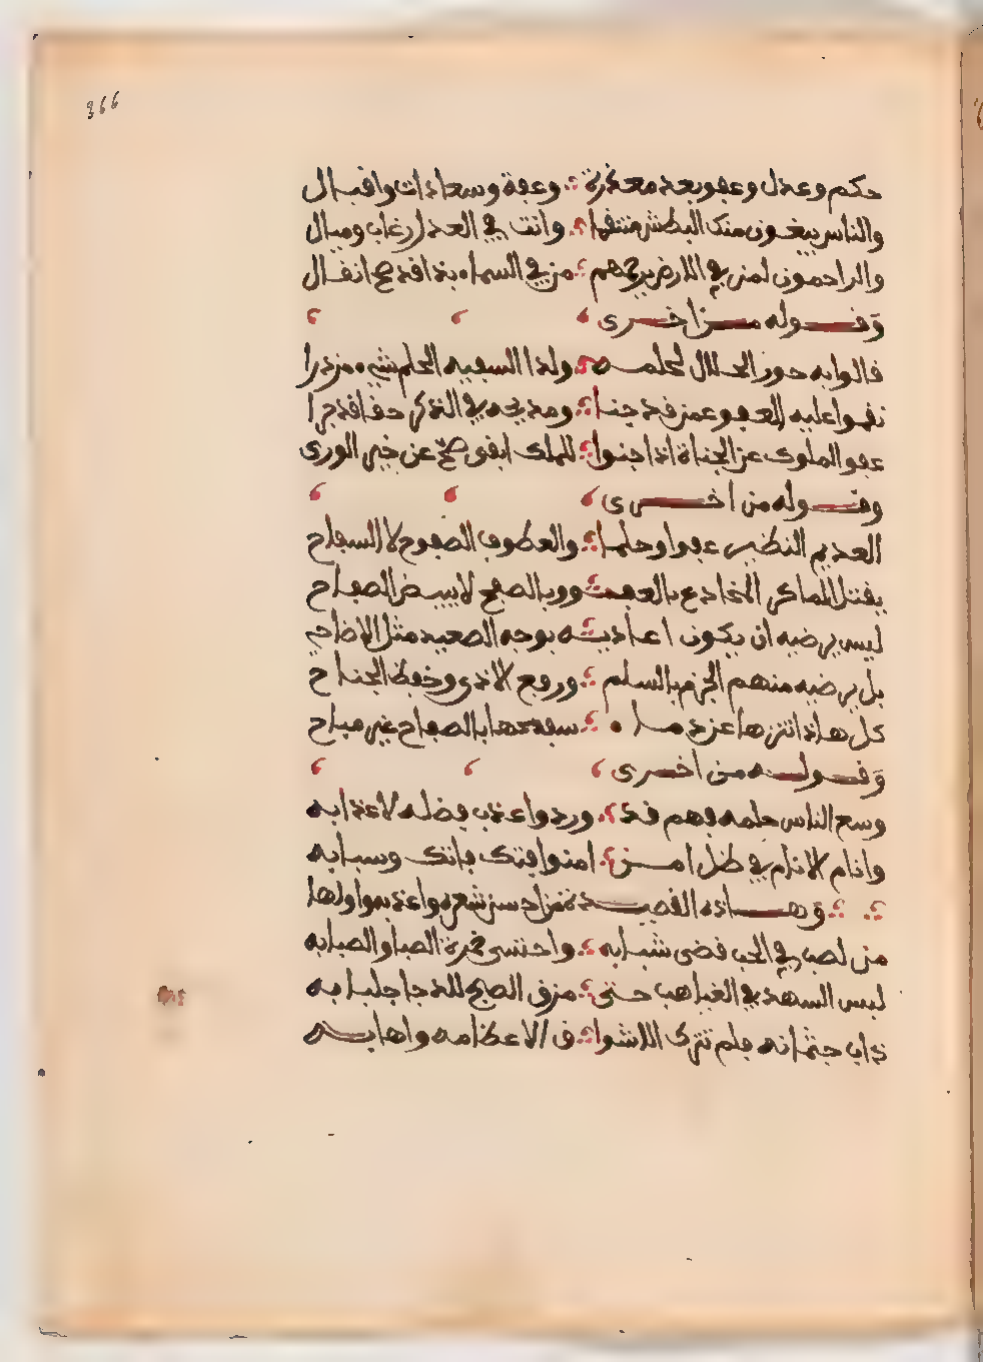 366
حكم وعدل وعفو بعد معذرة وعفة وسعادات واقبال
والناس يبغون منك البطش منتقما وانت في العدل رغاب وميال
والراحمون لمن في الارض يرحمهم من في السماء بذا قد صح انقال
وقوله من اخرى
قالوا به خور الحلال لحلمه ولذا السفيه الحلم شيء مزدرا
نقموا عليه العفو عمن قد جنا ومديحه في الذكر حقا قد جرا
عفو الملوك عن الجناة اذا جنوا للملك ابقى صح عن خير الورى
وقوله من اخرى
العديم النظير عفوا وحلما والعطوف الصفوح لا السفاح
يقتل الماكر المخادع بالعفو وبالصفح لا ببيض الصفاح
ليس يرضيه ان يكون اعاديه بوجه الصعيد مثل الاضاحي
بل يرضيه منهم الجزم بالسلم ورفع الاذى وخفظ الجناح
كل هاذا تنزها عن دما سفحها بالصفاح غير مباح
وقوله من اخرى
وسع الناس حلمه فهم قد وردوا عذب فضله لا عذابه
وانام الانام في ظل امن امنوا فتك فاتك وسبابه
وهاذه القصيدة من احسن شعره واعذبه واولها
من لصب في الحب قضى شبابه واحتسى خمرة الصبا والصبابه
لبس السهد في الغياهب حتى مزق الصبح للدجا جلبابه
ذاب جثمانه فلم تترك الاشواق الا عظامه واهابه